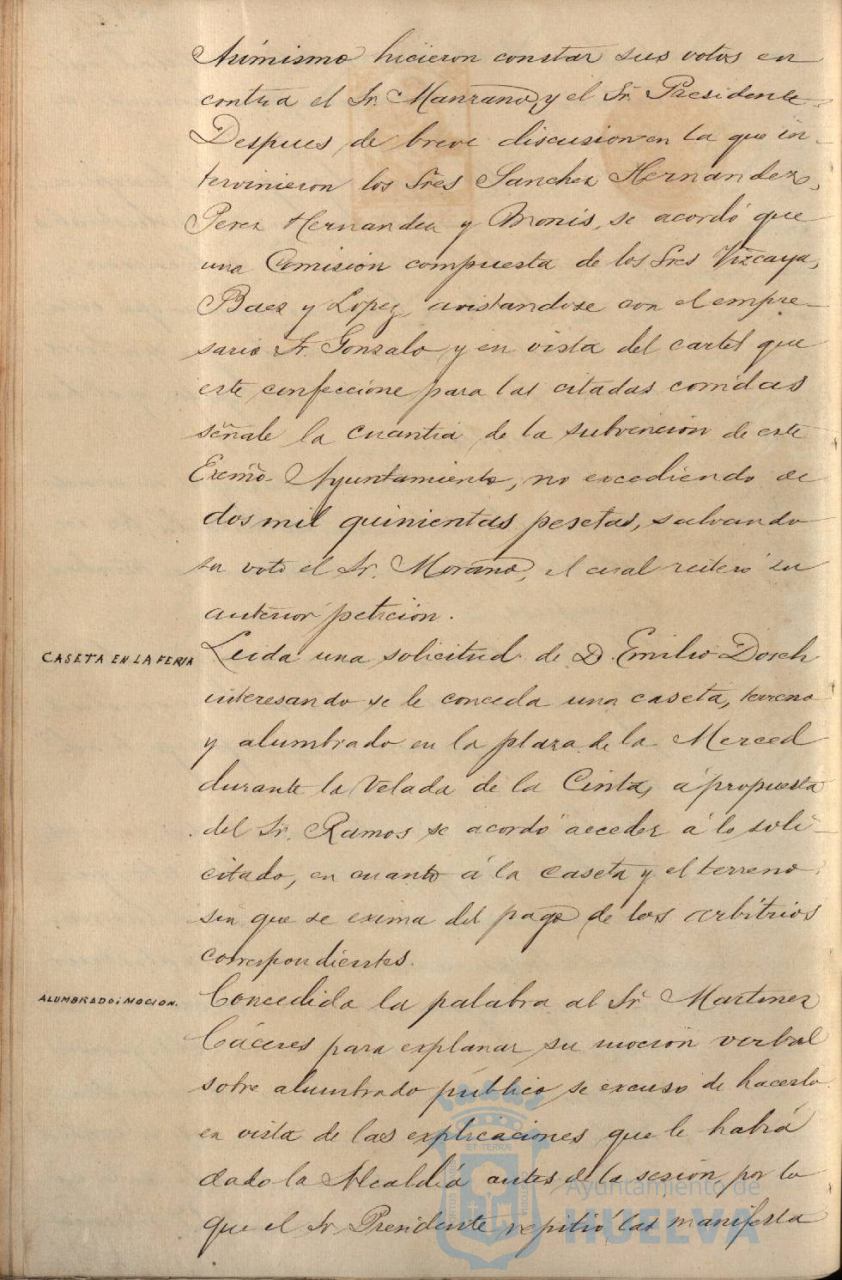 Asímismo hicieron constar sus votos en
contra el Sr. Manzano, y el Sr. Presidente.
Despues de breve discusion en la que in-
tervinieron los Sres Sanchez Hernandez,
Perez Hernandez y Monis, se acordó que
una Comisión compuesta de los Sres Vizcaya,
Baez y Lopez, avistandose con el empre-
sario Sr. Gonzalo y en vista del cartel que
este confeccione para las citadas corridas
señale la cuantía de la subvencion de este
Excmo. Ayuntamiento, no excediendo de
dos mil quinientas pesetas, salvando
su voto el Sr. Morano, el cual reiteró su
anterior petición.
CASETA EN LA FERIA
Leida una solicitud de D. Emilio Dosch
interesando se le conceda una caseta, terreno
y alumbrado en la plaza de la Merced
durante la Velada de la Cinta, á propuesta
del Sr. Ramos se acordó acceder á lo soli-
citado, en cuanto á la caseta y el terreno
sin que se exima del pago de los arbitrios
correspondientes.
ALUMBRADO: MOCION.
Concedida la palabra al Sr. Martinez
Cáceres para explanar su mocion verbal
sobre alumbrado público, se excusó de hacerlo
en vista de las explicaciones que le habrá
dado la Alcaldía antes de la sesion, por lo
que el Sr. Presidente repitió las manifesta
Ayuntamiento de
HUELVA